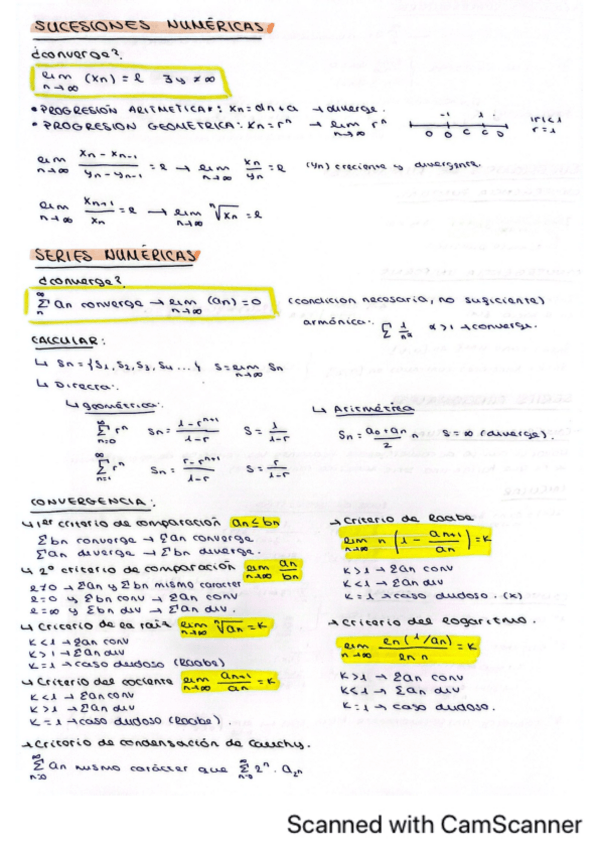 SUCESIONES NUMÉRICAS
¿converge?
lim n→∞ (xn) = l ∃ y ≠ ∞
• PROGRESIÓN ARITMETICA: xn = dn + a → diverge.
• PROGRESION GEOMETRICA: xn = r^n → lim n→∞ r^n -1 1 D D C C D |r| < 1 r = 1
lim n→∞ (xn - xn-1)/(yn - yn-1) = l → lim n→∞ xn/yn = l (yn) creciente y divergente.
lim n→∞ xn+1/xn = l → lim n→∞ ⁿ√xn = l
SERIES NUMÉRICAS
¿converge?
∞ Σ n an converge → lim n→∞ (an) = 0 (condicion necesaria, no suficiente)
armónica: Σ 1/n^α α > 1 → converge.
CALCULAR:
↳ Sn = {S1, S2, S3, S4 ... } S = lim n→∞ Sn
↳ Directa:
↳ geométrica: ↳ Aritmética
∞ Σ n=0 r^n Sn = (1 - r^n+1)/(1 - r) S = 1/(1 - r) Sn = (a0 + an)/2 n S = ∞ (diverge).
∞ Σ n=1 r^n Sn = (r - r^n+1)/(1 - r) S = r/(1 - r)
CONVERGENCIA:
→ 1er criterio de comparación an ≤ bn
Σbn converge → Σan converge
Σan diverge → Σbn diverge.
→ 2º criterio de comparación lim n→∞ an/bn
l ≠ 0 → Σan y Σbn mismo caracter
l = 0 y Σbn conv → Σan conv
l = ∞ y Σbn div → Σan div.
→ Criterio de la raíz lim n→∞ ⁿ√an = K
K < 1 → Σan conv
K > 1 → Σan div
K = 1 → caso dudoso (Raabe)
→ Criterio del cociente lim n→∞ an+1/an = K
K < 1 → Σan conv
K > 1 → Σan div
K = 1 → caso dudoso (Raabe).
→ Criterio de condensación de Cauchy.
∞ Σ n=0 an mismo carácter que ∞ Σ n=0 2^n · a2^n
→ Criterio de Raabe
lim n→∞ n (1 - an+1/an) = K
K > 1 → Σan conv
K < 1 → Σan div
K = 1 → caso dudoso. (x)
→ Criterio del logaritmo.
lim n→∞ ln(1/an)/ln n = K
K > 1 → Σan conv
K < 1 → Σan div
K = 1 → caso dudoso.
Scanned with CamScanner